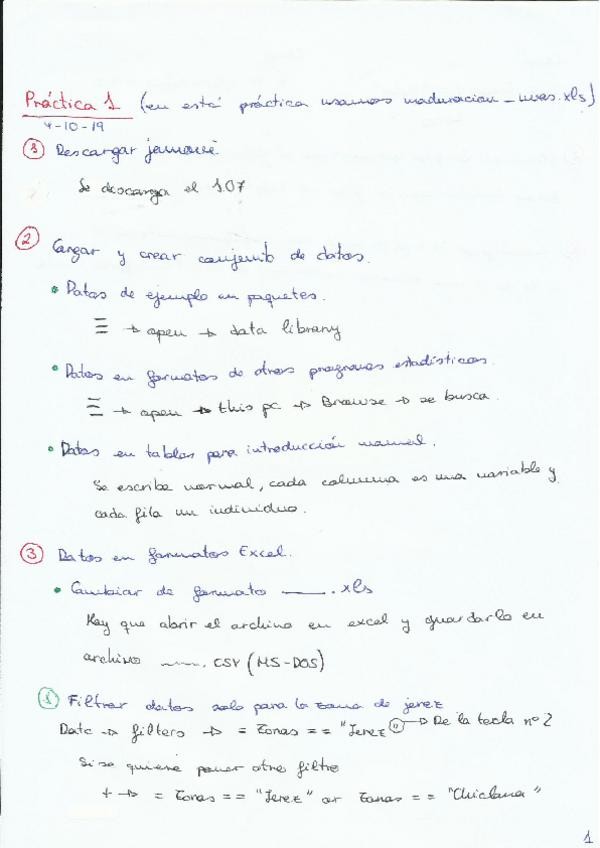 Práctica 1 (en está práctica usamos maduracion_uvas.xls)
4-10-19
① Descargar jamovi.
Se descarga el 1.07
② Cargar y crear conjunto de datos.
• Datos de ejemplo en paquetes.
≡ → open → data library
• Datos en formatos de otros programas estadísticos.
≡ → open → this pc → Browse → se busca.
• Datos en tablas para introducción manual.
Se escribe normal, cada columna es una variable y
cada fila un individuo.
③ Datos en formatos Excel.
• Cambiar de formato ——.xls
Hay que abrir el archivo en excel y guardarlo en
archivo ——.CSV (MS-DOS)
① Filtrar datos solo para la zona de jerez
Data → filters → = Zonas == "Jerez" → De la tecla nº 2
Si se quiere poner otro filtro
+ → = Zonas == "Jerez" or Zonas == "Chiclana"
1